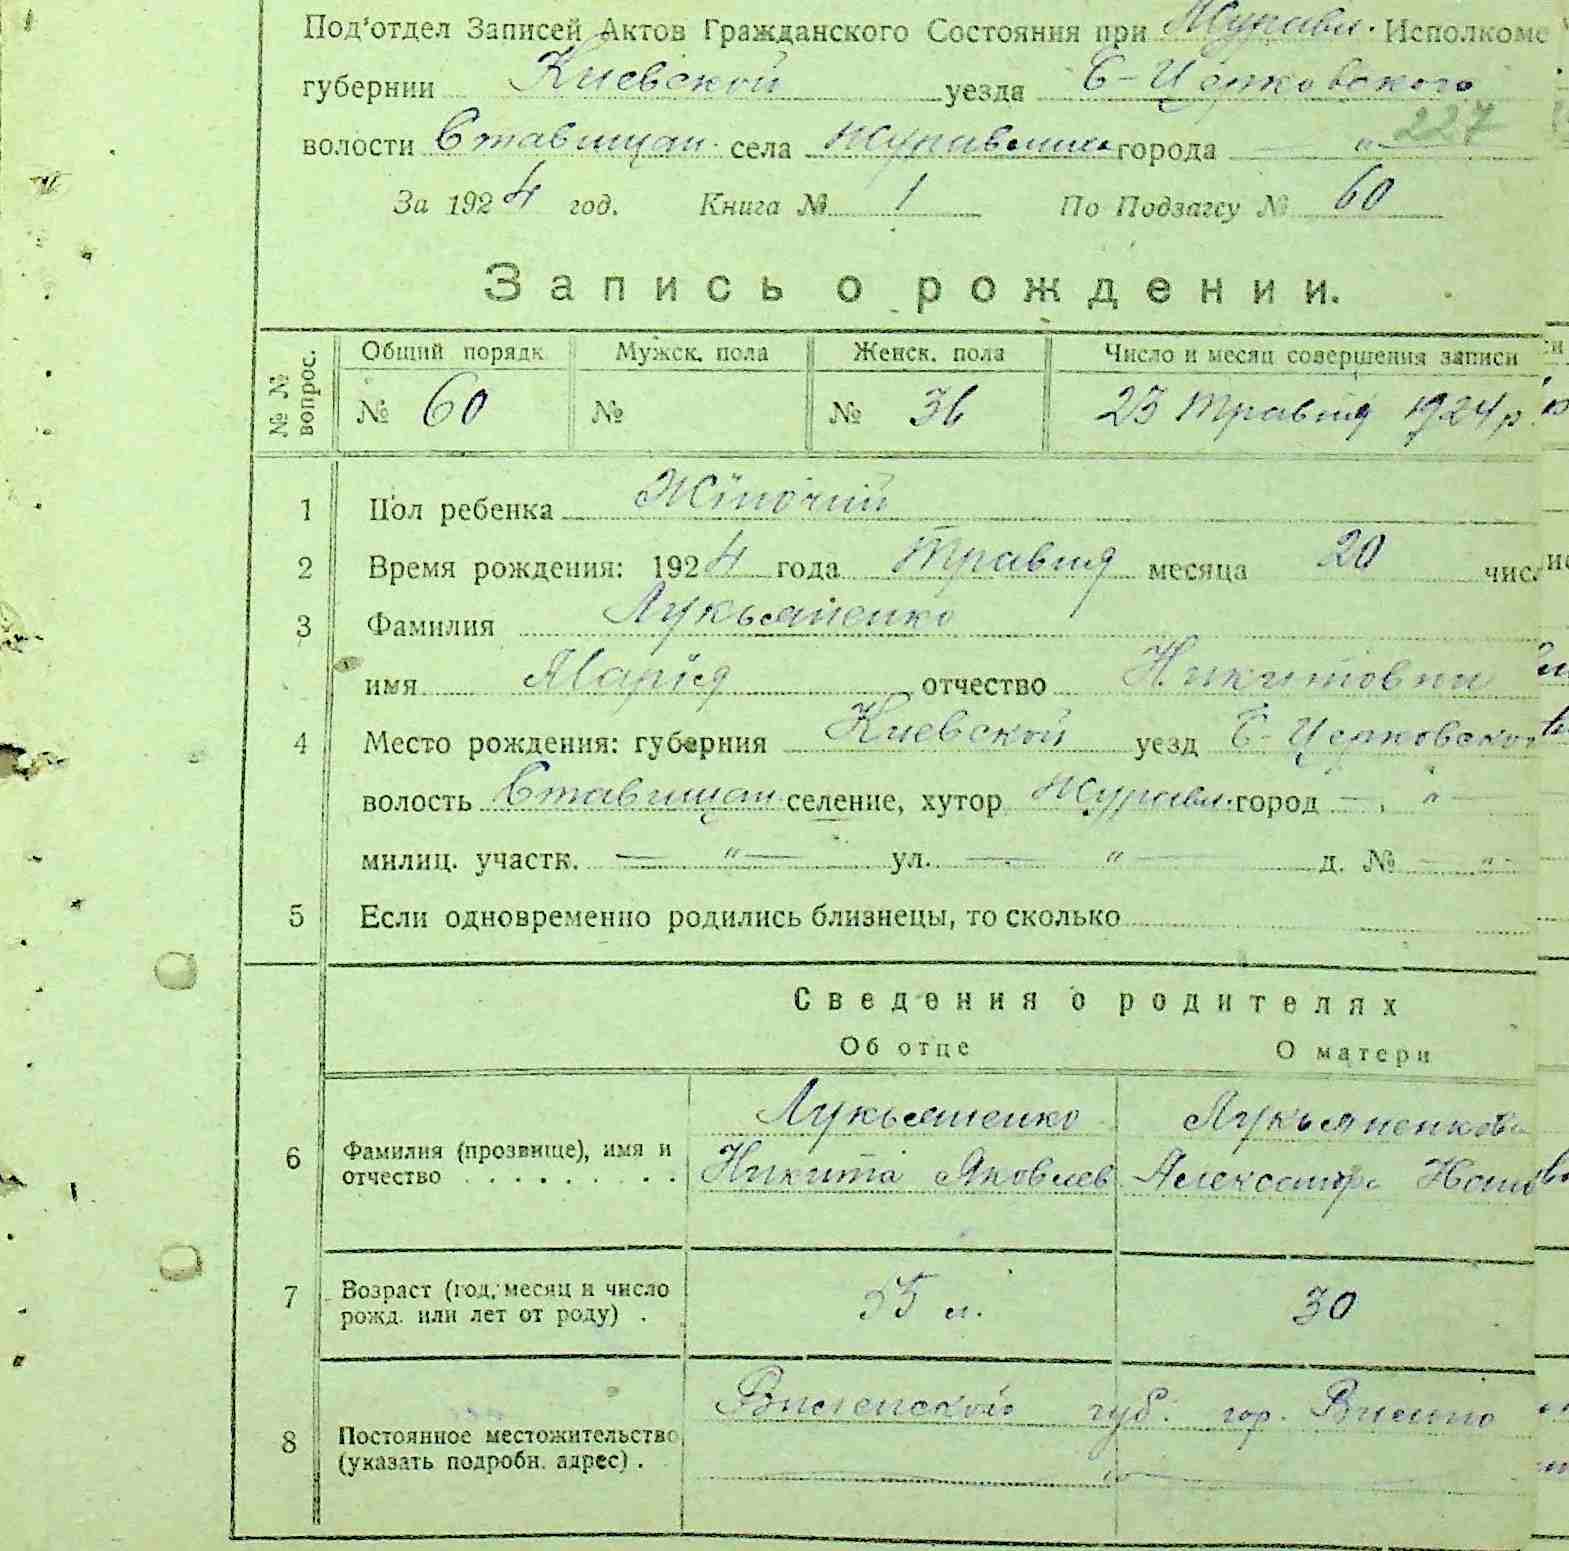 Под'отдел Записей Актов Гражданского Состояния при Журавл. Исполкоме
губернии Киевской уезда Б-Церковского
волости Ставищан. села Журавлиха города — „ —
227
За 1924 год. Книга № 1 По Подзагсу № 60
Запись о рождении.
№ № вопрос. Общий порядк. Мужск. пола Женск. пола Число и месяц совершения записи
№ 60 № № 36 23 травня 1924 р.
1 Пол ребенка Жіночий
2 Время рождения: 1924 года травня месяца 20 числ
3 Фамилия Лукьяненко
имя Марія отчество Никитовни
4 Место рождения: губерния Киевской уезд Б-Церковского
волость Ставищан. селение, хутор Журавл. город — „ —
милиц. участк. — „ — ул. — „ — д. № — „ —
5 Если одновременно родились близнецы, то сколько
Сведения о родителях
Об отце О матери
6 Фамилия (прозвище), имя и отчество . . . . . . . . .
Лукьяненко Лукьяненкова
Никита Яковлев Александра
7 Возраст (год, месяц и число рожд. или лет от роду) .
55 л. 30
8 Постоянное местожительство (указать подробн. адрес) .
Виленской губ. гор. Вильно